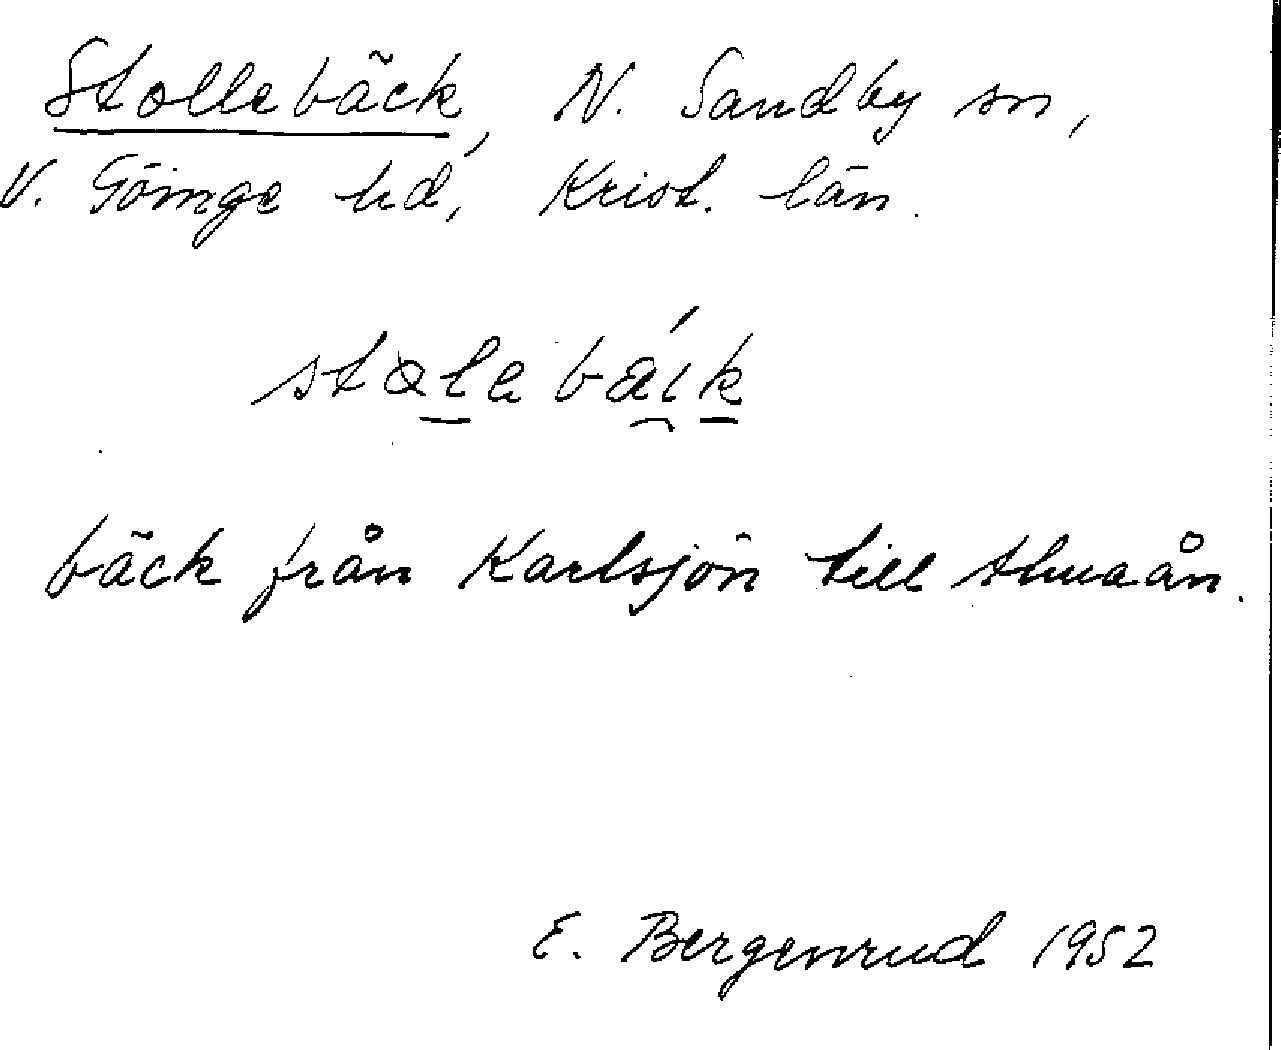 Stollebäck, N. Sandby sn,
V. Göinge hd, Krist. län.
stalebæik
bäck från Karlsjön till Almaån.
E. Bergenrud 1952